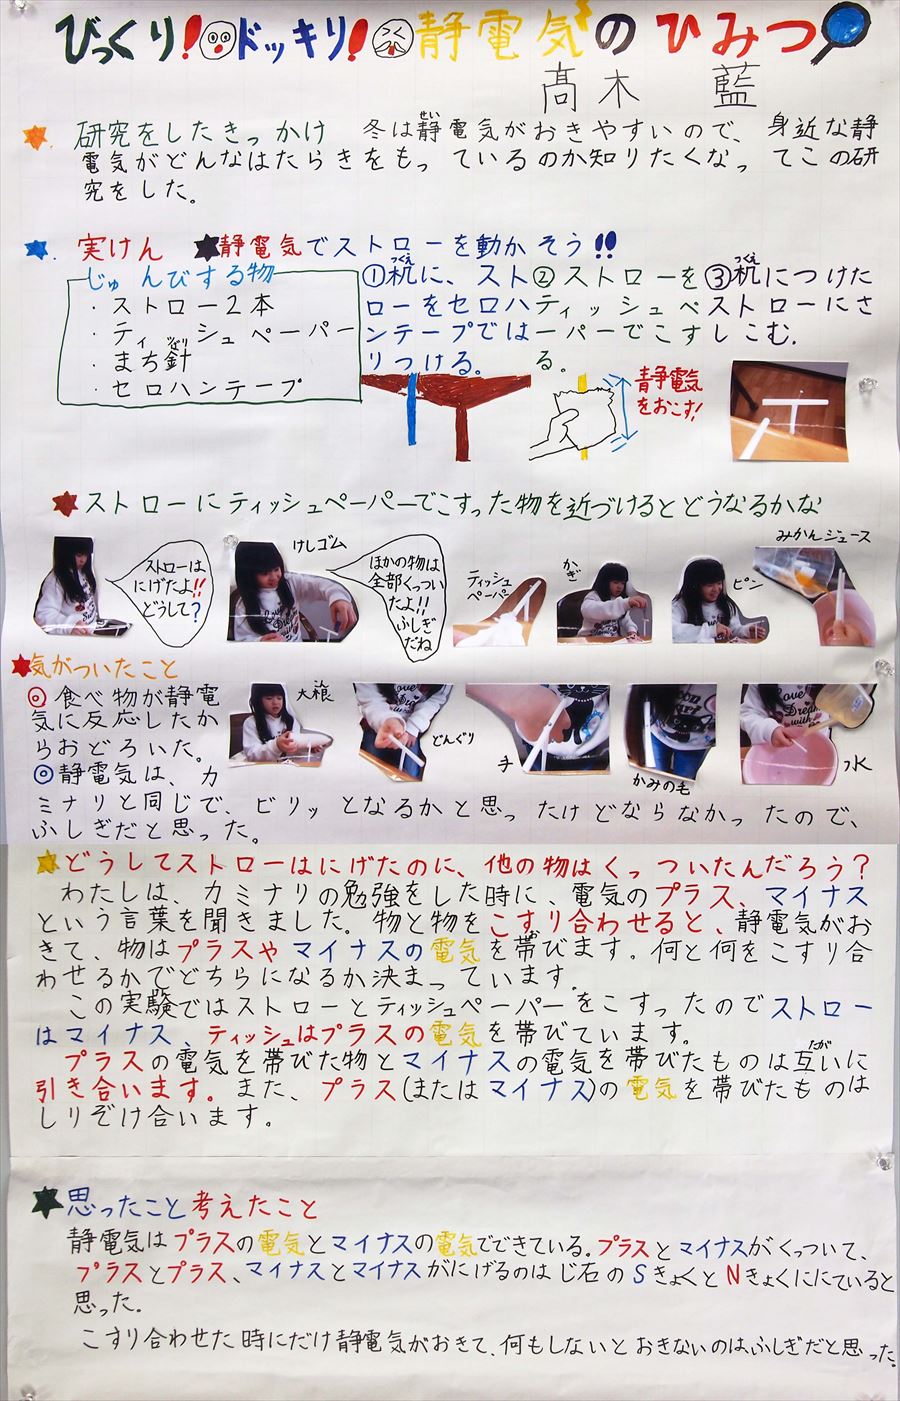 びっくり!ドッキリ!静電気のひみつ
髙木 藍
研究をしたきっかけ 冬は静電気がおきやすいので、身近な静
せい
電気がどんなはたらきをもっているのか知りたくなってこの研
究をした。
実けん ★静電気でストローを動かそう!!
じゅんびする物
・ストロー2本
・ティッシュペーパー
・まち針
ばり
・セロハンテープ
①机に、スト
つくえ
ローをセロハ
ンテープでは
りつける。
②ストローを
ティッシュペ
ーパーでこす
る。
③机につけた
つくえ
ストローにさ
しこむ.
静電気
をおこす!
ストローにティッシュペーパーでこすった物を近づけるとどうなるかな
ストローは
にげたよ!!
どうして?
けしゴム
ほかの物は
全部くっつい
たよ!!
ふしぎ
だね
ティッシュ
ペーパー
かぎ
ピン
みかんジュース
気がついたこと
◎食べ物が静電
気に反応したか
らおどろいた。
◎静電気は、カ
ミナリと同じで、ビリッとなるかと思ったけどならなかったので、
ふしぎだと思った。
大根
どんぐり
手
かみの毛
水
どうしてストローはにげたのに、他の物はくっついたんだろう?
わたしは、カミナリの勉強をした時に、電気のプラス、マイナス
という言葉を聞きました。物と物をこすり合わせると、静電気がお
きて、物はプラスやマイナスの電気を帯びます。何と何をこすり合
お
わせるかでどちらになるか決まっています.
この実験ではストローとティッシュペーパーをこすったのでストロー
はマイナス、ティッシュはプラスの電気を帯びています。
プラスの電気を帯びた物とマイナスの電気を帯びたものは互いに
たが
引き合います。また、プラス(またはマイナス)の電気を帯びたものは
しりぞけ合います。
思ったこと考えたこと
静電気はプラスの電気とマイナスの電気でできている。プラスとマイナスがくっついて、
プラスとプラス、マイナスとマイナスがにげるのはじ石のSきょくとNきょくににていると
思った。
こすり合わせた時にだけ静電気がおきて、何もしないとおきないのはふしぎだと思った。